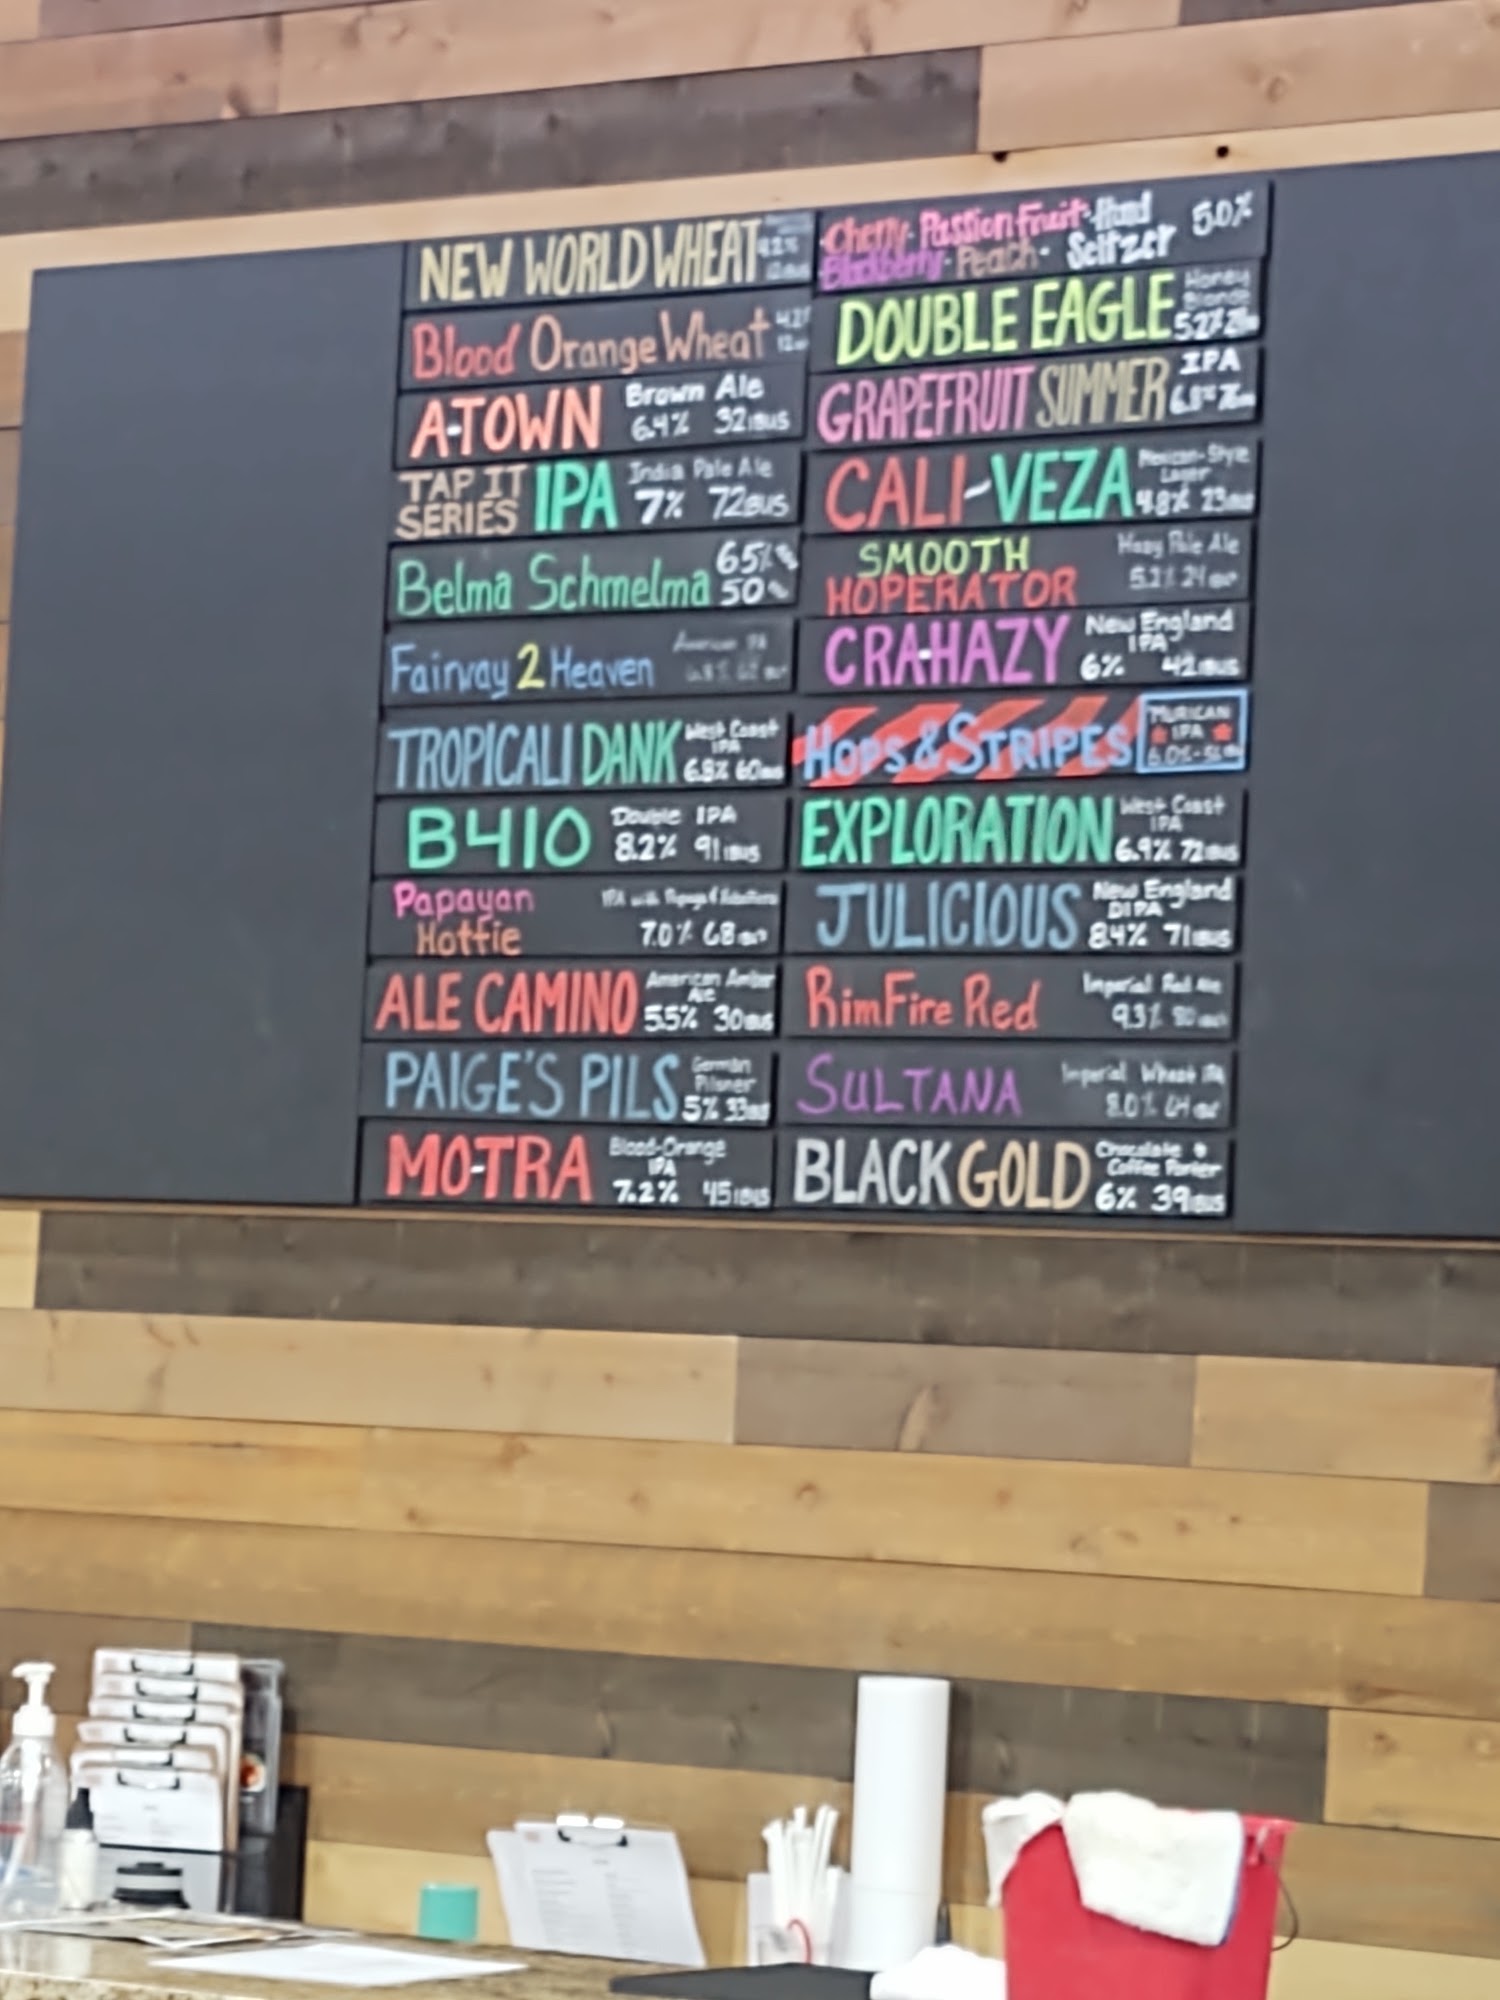 NEW WORLD WHEAT 4.2%
Blood Orange Wheat 4.2%
A-TOWN Brown Ale
6.4% 32 IBUS
TAP IT SERIES IPA India Pale Ale
7% 72 IBUS
Belma Schmelma 65%
50
Fairway 2 Heaven American IPA
TROPICALI DANK West Coast
IPA
6.8% 60 IBUS
B410 Double IPA
8.2% 91 IBUS
Papayan IPA with Papaya &
Hottie 7.0% 68
ALE CAMINO American Amber
Ale
5.5% 30 IBUS
PAIGE'S PILS German
Pilsner
5% 33 IBUS
MO-TRA Blood-Orange
IPA
7.2% 45 IBUS
Cherry-Passion Fruit-Hard 5.0%
Blackberry-Peach- Seltzer
DOUBLE EAGLE Honey
Blonde
5.2%
GRAPEFRUIT SUMMER IPA
CALI-VEZA Mexican-Style
Lager
4.8% 23 IBUS
SMOOTH Hazy Pale Ale
HOPERATOR 5.2% 24
CRA-HAZY New England
IPA
6% 42 IBUS
HOPS & STRIPES MURICAN
IPA
EXPLORATION West Coast
IPA
6.9% 72 IBUS
JULICIOUS New England
DIPA
8.4% 71 IBUS
RimFire Red Imperial Red Ale
9.3% 80
SULTANA Imperial Wheat IPA
8.0% 64
BLACK GOLD Chocolate &
Coffee Porter
6% 39 IBUS